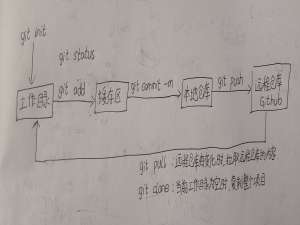 git init
git status
git add
git commit -m
git push
工作目录
暂存区
本地仓库
远程仓库
Github
git pull : 远程仓库有变化时, 拉取远程仓库的内容
git clone : 当前工作目录为空时, 复制整个项目